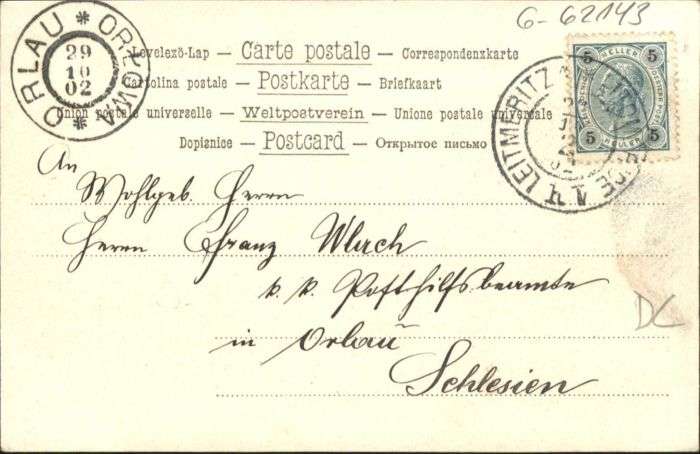 G-62143
ORLAU * ORŁOWA *
29
10
02
Levelezö-Lap — Carte postale — Correspondenzkarte
Cartolina postale — Postkarte — Briefkaart
Union postale universelle — Weltpostverein — Unione postale universale
Dopisnice — Postcard — Открытое письмо
5 HELLER 5
5 HELLER 5
LEITMERITZ 1
An
Wohlgeb. Herrn
Herrn Franz
k. k. Posthilfsbeamte
in Orlau
Schlesien
DC